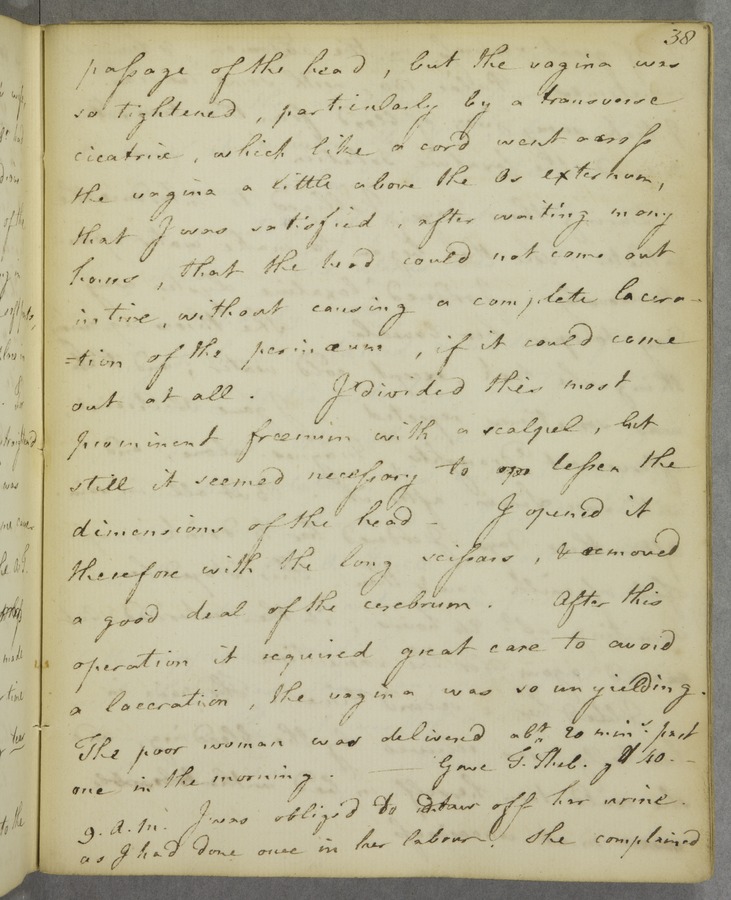 38
passage of the head, but the vagina was
so tightened, particularly by a transverse
cicatrix, which like a cord went across
the vagina a little above the Os externum,
that I was satisfied, after waiting many
hours, that the head could not come out
intire, without causing a complete lacera-
=tion of the perinæum, if it could come
out at all. I divided this most
prominent frænum with a scalpel, but
still it seemed necessary to lessen the
dimensions of the head - I opened it
therefore with the long scissars, & removed
a good deal of the cerebrum. After this
operation it required great care to avoid
a laceration, the vagina was so unyielding.
The poor woman was delivered abt. 20 mins. past
one in the morning. — Gave T. Theb. gtt 40. -
9. A.M. I was obliged to draw off her urine.
as I had done once in her labour. She complained